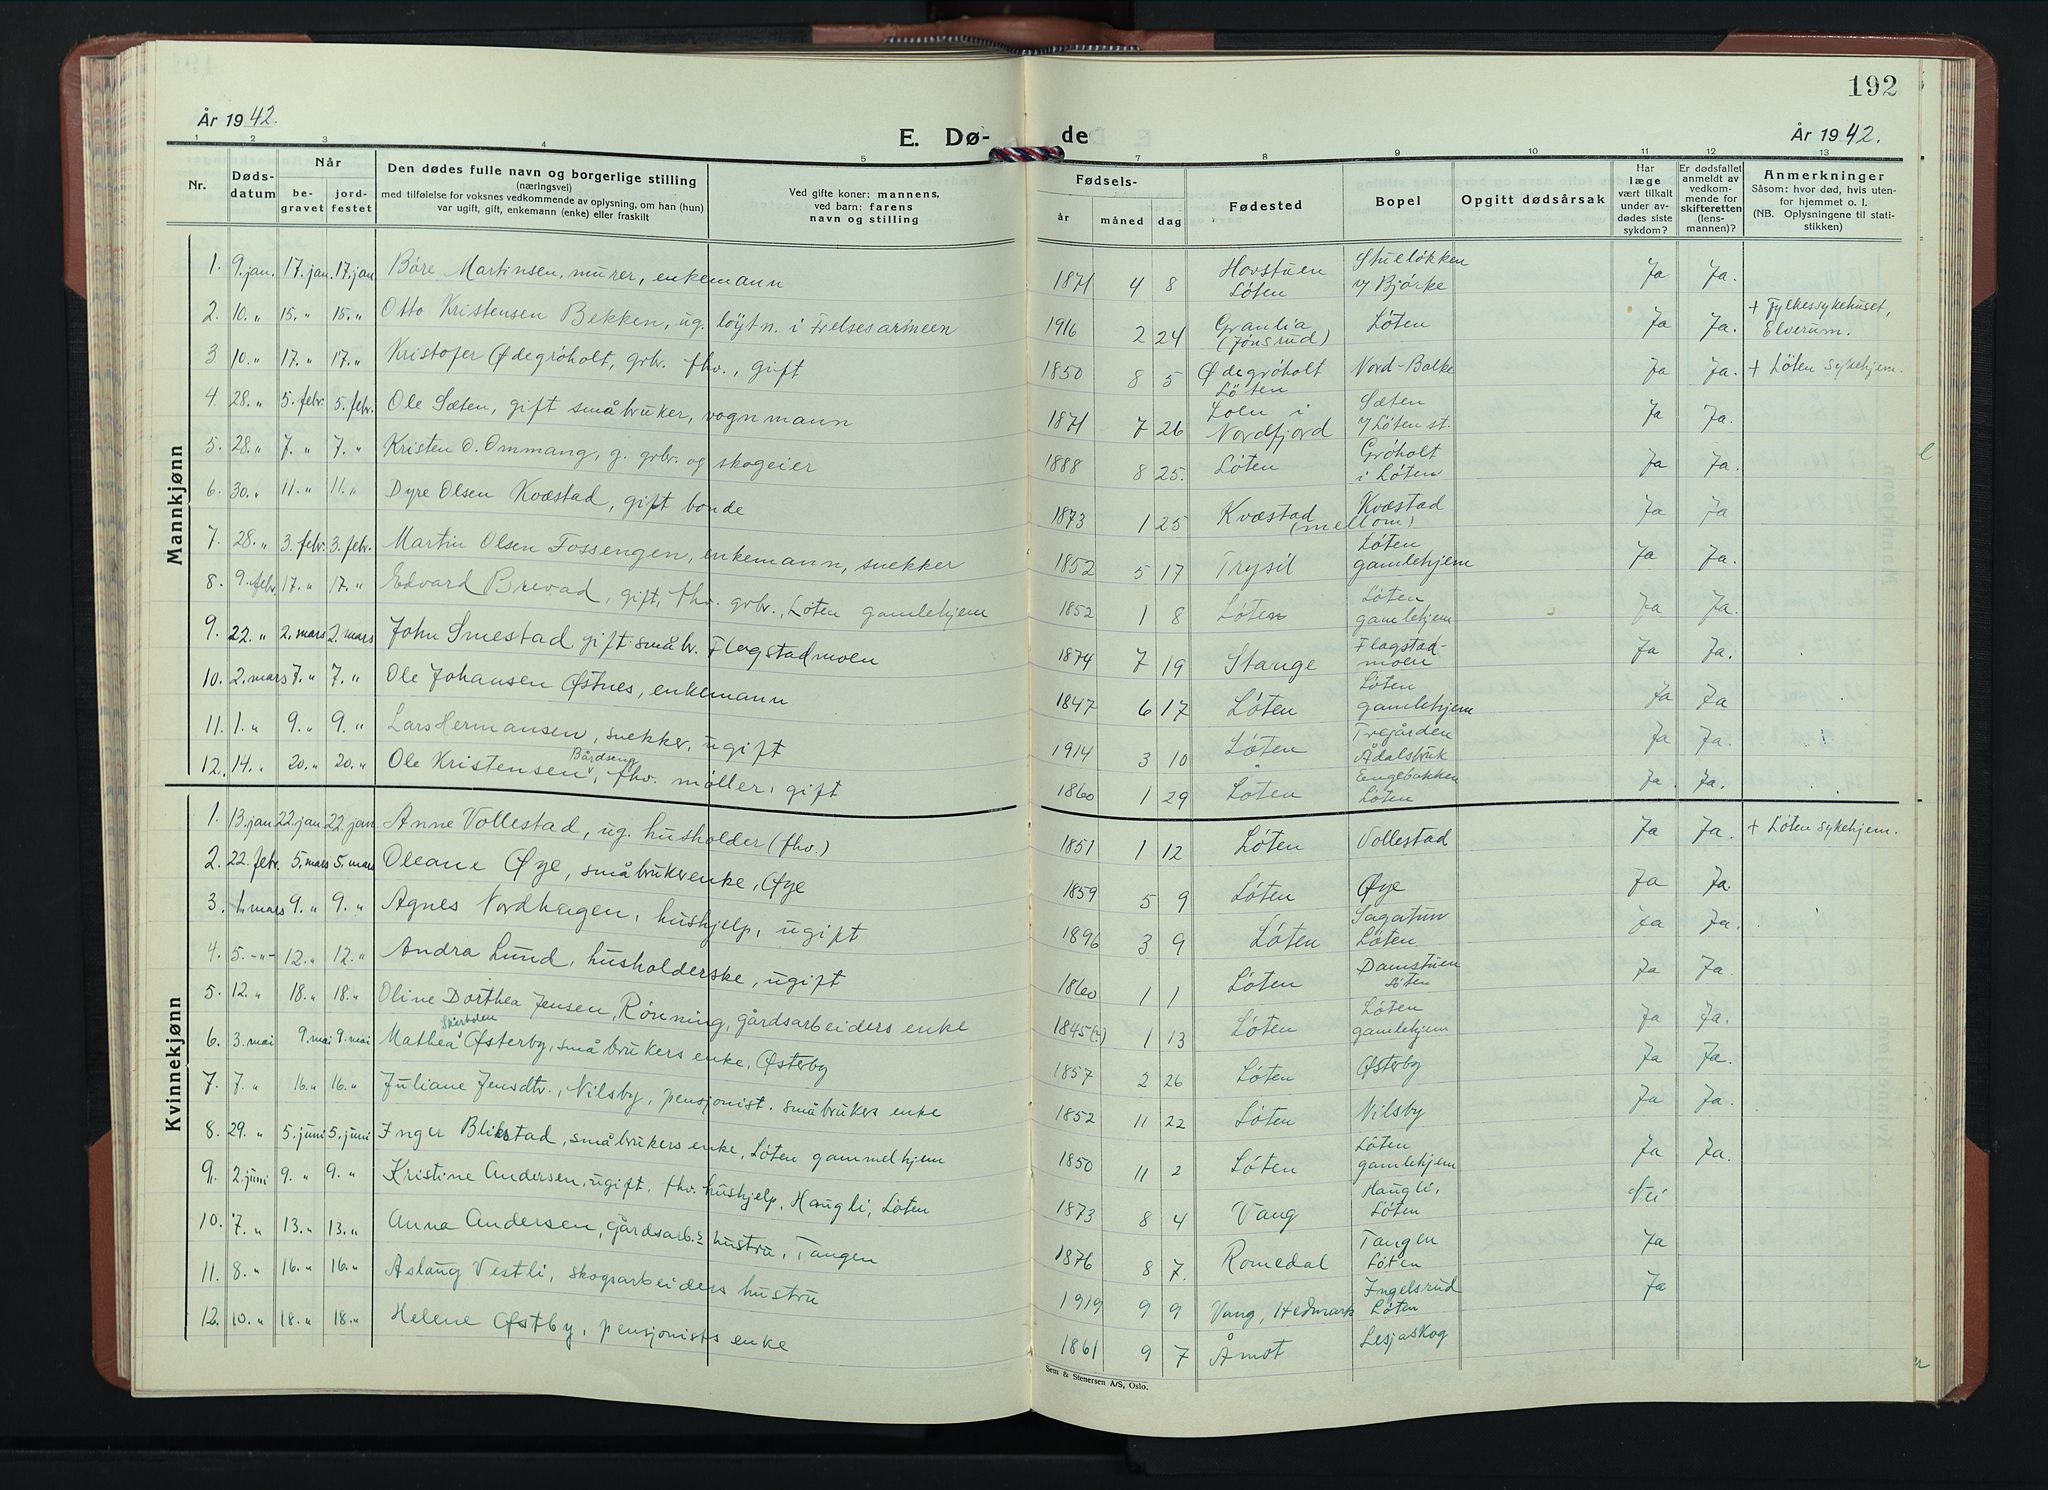 192
År 1942.
E. Dø-
de
År 1942.
1 2 3 4 5 7 8 9 10 11 12 13
Nr.
Døds-
datum
Når
be-
gravet
jord-
festet
Den dødes fulle navn og borgerlige stilling
(næringsvei)
med tilføielse for voksnes vedkommende av oplysning, om han (hun)
var ugift, gift, enkemann (enke) eller fraskilt
Ved gifte koner: mannens,
ved barn: farens
navn og stilling
Fødsels-
år måned dag
Fødested
Bopel
Opgitt dødsårsak
Har
læge
vært tilkalt
under av-
dødes siste
sykdom?
Er dødsfallet
anmeldt av
vedkom-
mende for
skifteretten
(lens-
mannen)?
Anmerkninger
Såsom: hvor død, hvis uten-
for hjemmet o. l.
(NB. Oplysningene til stati-
stikken)
Mannkjønn
1. 9. jan. 17. jan 17. jan Børe Martinsen, murer, enkemann 1871 4 8 Hovstuen Løten Stueløkken y Bjørke Ja Ja.
2. 10. „ 15. „ 15. „ Otto Kristensen Bekken, ug. løytn. i Frelsesarmeen 1916 2 24 Granlia (Jønsrud) Løten Ja Ja. + Fylkessykehuset, Elverum.
3. 10. „ 17. „ 17. „ Kristofer Ødegróholt, grbr. fhv., gift 1850 8 5 Ødegróholt Löten Nord-Balke Ja Ja. + Løten sykehjem.
4. 28. „ 5. febr. 5. febr. Ole Sæten, gift småbruker, vognmann 1871 7 26 Loen i Nordfjord Sæten y Løten st. Ja Ja.
5. 28. „ 7. „ 7. „ Kristen O. Ommang, g. grbr. og skogeier 1888 8 25. Løten Gróholt i Løten Ja Ja.
6. 30. „ 11. „ 11. „ Dyre Olsen Kvæstad, gift bonde 1873 1 25 Kvæstad (mellom) Kvæstad Ja Ja
7. 28. „ 3. febr. 3. febr. Martin Olsen Fossengen, enkemann, snekker 1852 5 17 Trysil Løten gamlehjem Ja Ja.
8. 9. febr. 17. „ 17. „ Edvard Brevad, gift, fhv. grbr., Løten gamlehjem 1852 1 8 Løten Løten gamlehjem Ja Ja.
9. 22. „ 2. mars 2. mars John Smestad gift småbr. Flagstadmoen 1874 7 19 Stange Flagstad-moen Ja Ja.
10. 2. mars 7. „ 7. „ Ole Johansen Østnes, enkemann 1847 6 17 Løten Løten gamlehjem Ja Ja
11. 1. „ 9. „ 9. „ Lars Hermansen, snekker, ugift 1914 3 10 Løten Tregården Ådalsbruk Ja Ja.
12. 14. „ 20. „ 20. „ Ole Kristensen Bårdseng, fhv. møller, gift 1860 1 29 Løten Engebakken Løten Ja. Ja.
Kvinnekjønn
1. 13. jan 22. jan 22. jan Anne Vollestad, ug. husholder (fhv.) 1851 1 12 Løten Vollestad Ja Ja. + Løten sykehjem.
2. 22. febr. 5. mars 5. mars Oleane Øye, småbrukerenke, Øye 1859 5 9 Løten Øye Ja Ja.
3. 1. mars 9. „ 9. „ Agnes Nordhagen, hushjelp, ugift 1896 3 9 Løten Sagatun Løten Ja Ja.
4. 5. -„- 12. „ 12. „ Andra Lund, husholderske, ugift 1860 1 1 Løten Damstuen Løten Ja Ja.
5. 12. „ 18. „ 18. „ Oline Dorthea Jensen, Rønning, gårdsarbeiders enke 1845(?) 1 13 Løten Løten gamlehjem Ja Ja.
6. 3. mai 9. mai 9. mai Mathea Østerby, småbrukers enke, Østerby 1857 2 26 Løten Østerby Ja Ja.
7. 7. „ 16. „ 16. „ Juliane Jensdtr., Nilsby, pensjonist. småbrukers enke 1852 11 22 Løten Nilsby Ja Ja.
8. 29. „ 5. juni 5. juni Inger Blikstad, småbrukers enke, Løten gammelhjem 1850 11 2 Løten Løten gamlehjem Ja Ja.
9. 2. juni 9. „ 9. „ Kristine Andersen, ugift, fhv. hushjelp, Haugli, Løten 1873 8 4 Vang Haugli, Løten Nei
10. 7. „ 13. „ 13. „ Anna Andersen, gårdsarb.s hustru, Tangen 1876 8 7. Romedal Tangen Løten Ja
11. 8. „ 16. „ 16. „ Aslaug Vestli, skogsarbeiders hustru 1919 9 9 Vang, Hedmark Ingelsrud Løten Ja
12. 10. „ 18. „ 18. „ Helene Østby, pensjonists enke 1861 9 7 Åmot Lesjaskog
Sem & Stenersen A/S, Oslo.